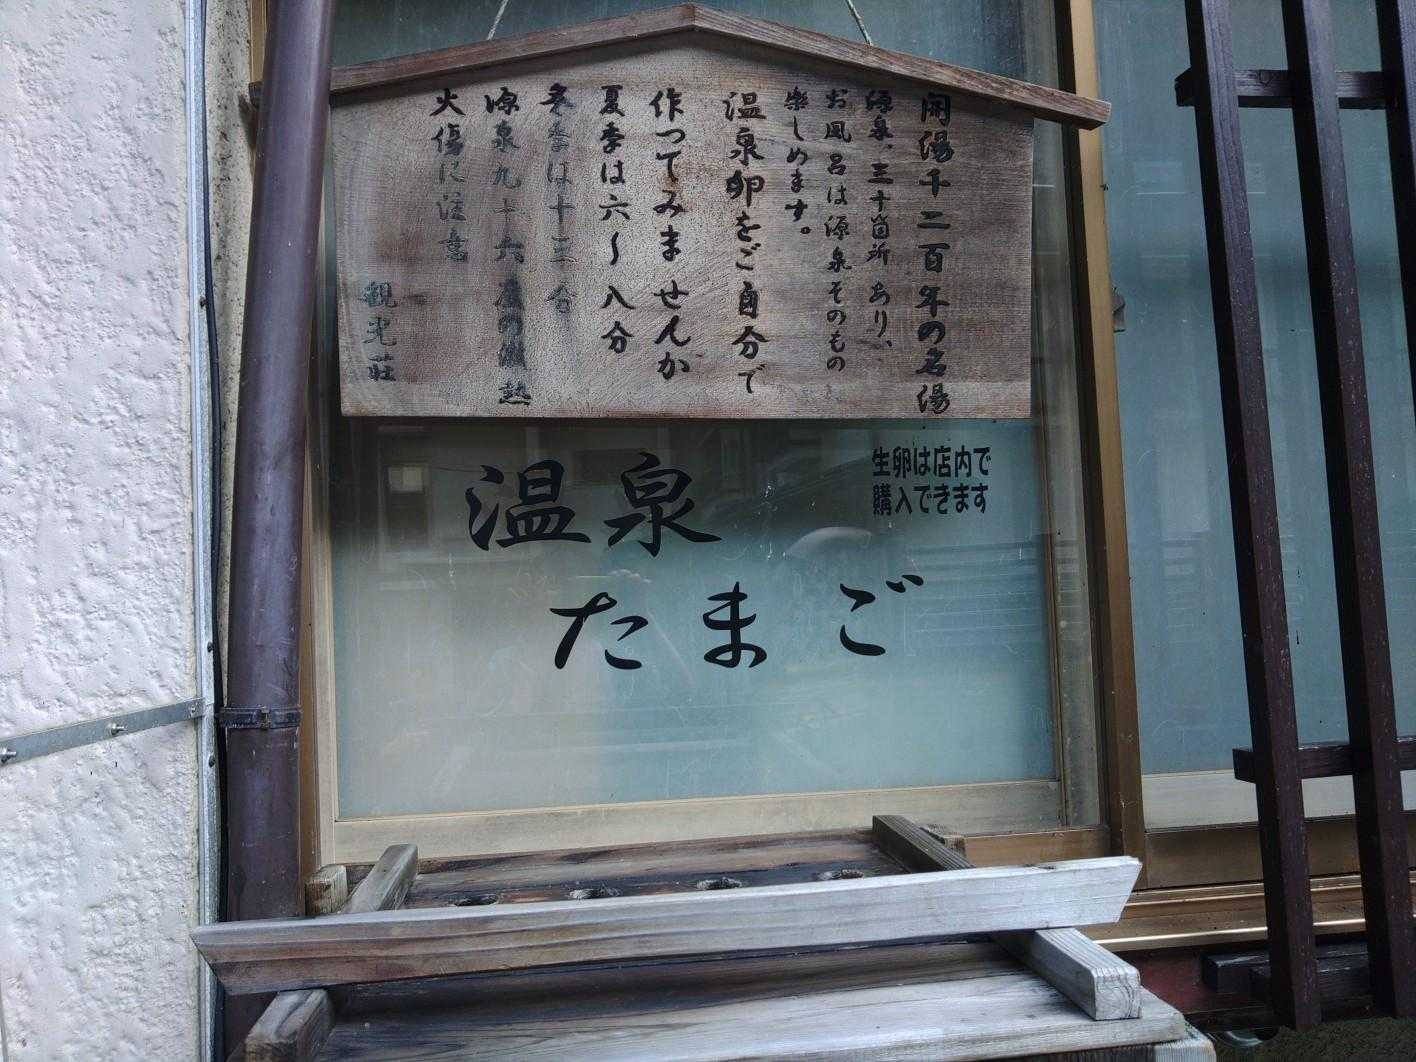 開湯千二百年の名湯
源泉、三十箇所あり、
お風呂は源泉そのもの
楽しめます。
温泉卵をご自分で
作ってみませんか
夏季は六～八分
冬季は十三分
源泉九十六度の激熱
火傷に注意
観光荘
生卵は店内で
購入できます
温泉
たまご